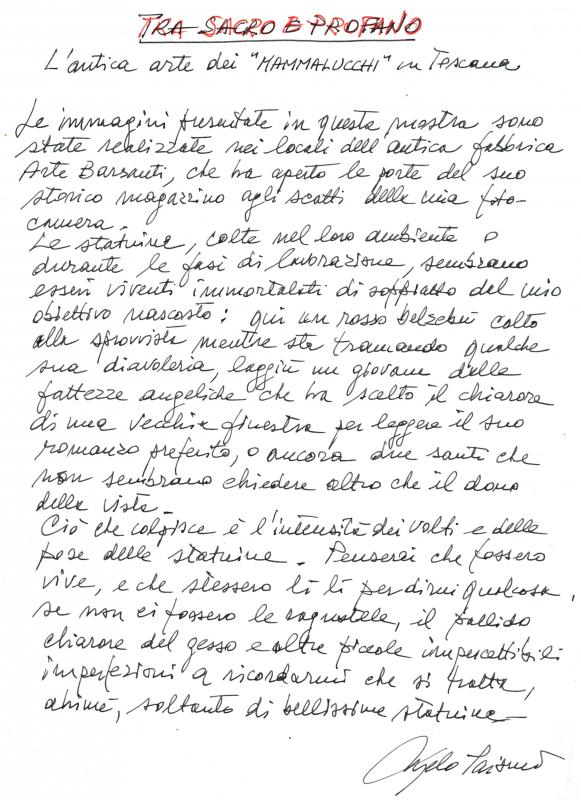 TRA SACRO E PROFANO
L'antica arte dei "MAMMALUCCHI" in Toscana
Le immagini presentate in questa mostra sono
state realizzate nei locali dell'antica fabbrica
Arte Barsanti, che ha aperto le porte del suo
storico magazzino agli scatti della mia foto-
camera.
Le statuine, colte nel loro ambiente o
durante le fasi di lavorazione, sembrano
esseri viventi immortalati di soppiatto dal mio
obiettivo nascosto: qui un rosso belzebù colto
alla sprovvista mentre sta tramando qualche
sua diavoleria, laggiù un giovane dalle
fattezze angeliche che ha scelto il chiarore
di una vecchia finestra per leggere il suo
romanzo preferito, o ancora due santi che
non sembrano chiedere altro che il dono
della vista.
Ciò che colpisce è l'intensità dei volti e delle
pose delle statuine. Penserei che fossero
vive, e che stessero lì lì per dirmi qualcosa,
se non ci fossero le ragnatele, il pallido
chiarore del gesso e altre piccole impercettibili
imperfezioni a ricordarmi che si tratta,
ahimè, soltanto di bellissime statuine.